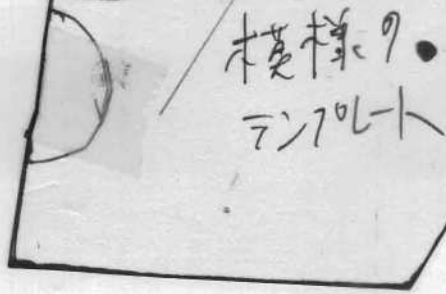 模様の
テンプレート